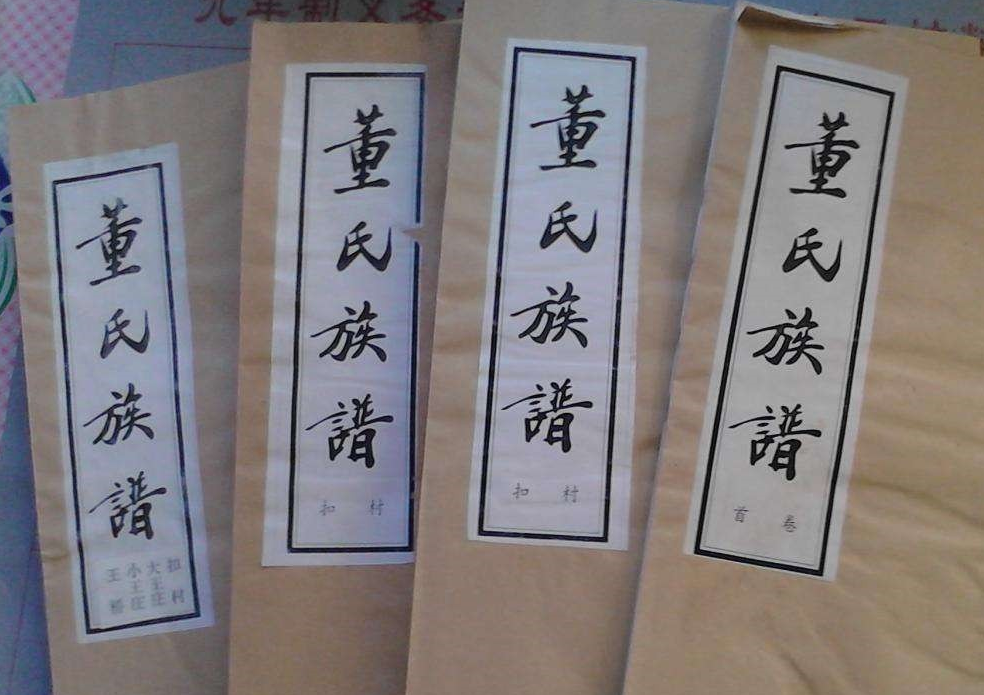 九年制义务
董氏族譜
扣村
大王庄
小王庄
王桥
董氏族譜
扣村
董氏族譜
扣村
董氏族譜
首卷